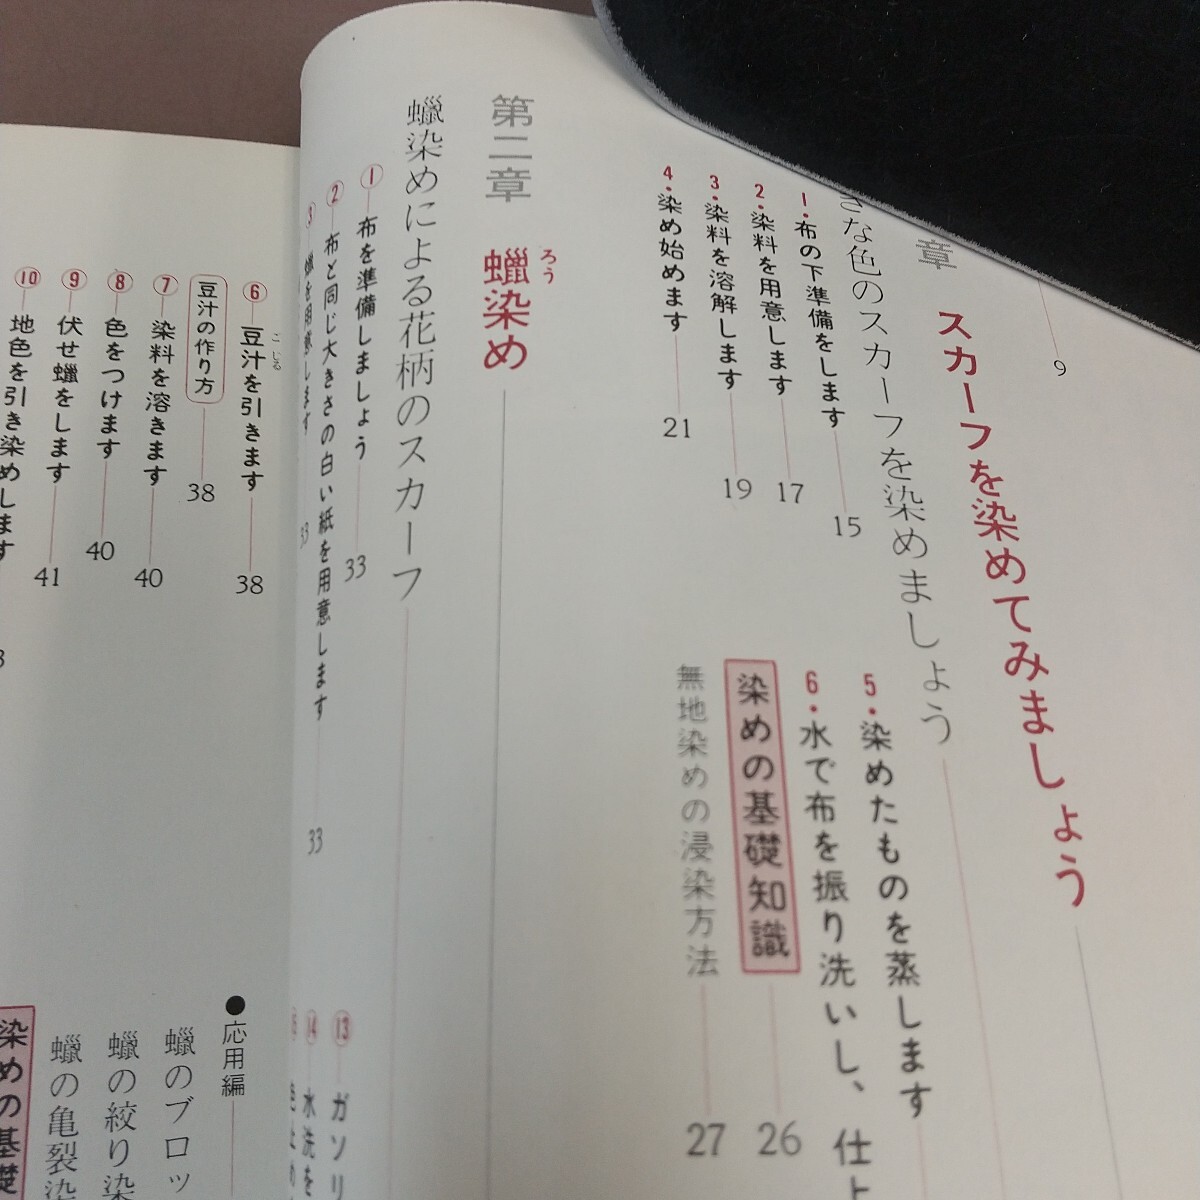 9
章 スカーフを染めてみましょう
きな色のスカーフを染めましょう
1・布の下準備をします 15
2・染料を用意します 17
3・染料を溶解します 19
4・染め始めます 21
5・染めたものを蒸します
6・水で布を振り洗いし、仕上
染めの基礎知識 26
無地染めの浸染方法 27
第二章 蠟染め
ろう
蠟染めによる花柄のスカーフ
① 布を準備しましょう 33
② 布と同じ大きさの白い紙を用意します 33
③ 蠟を用意します 33
⑬ ガソリ
⑭ 水洗を
⑥ 豆汁を引きます 38
こじる
豆汁の作り方 38
⑦ 染料を溶きます 40
⑧ 色をつけます 40
⑨ 伏せ蠟をします 41
⑩ 地色を引き染めします
●応用編
蠟のブロッ
蠟の絞り染
蠟の亀裂染
染めの基礎